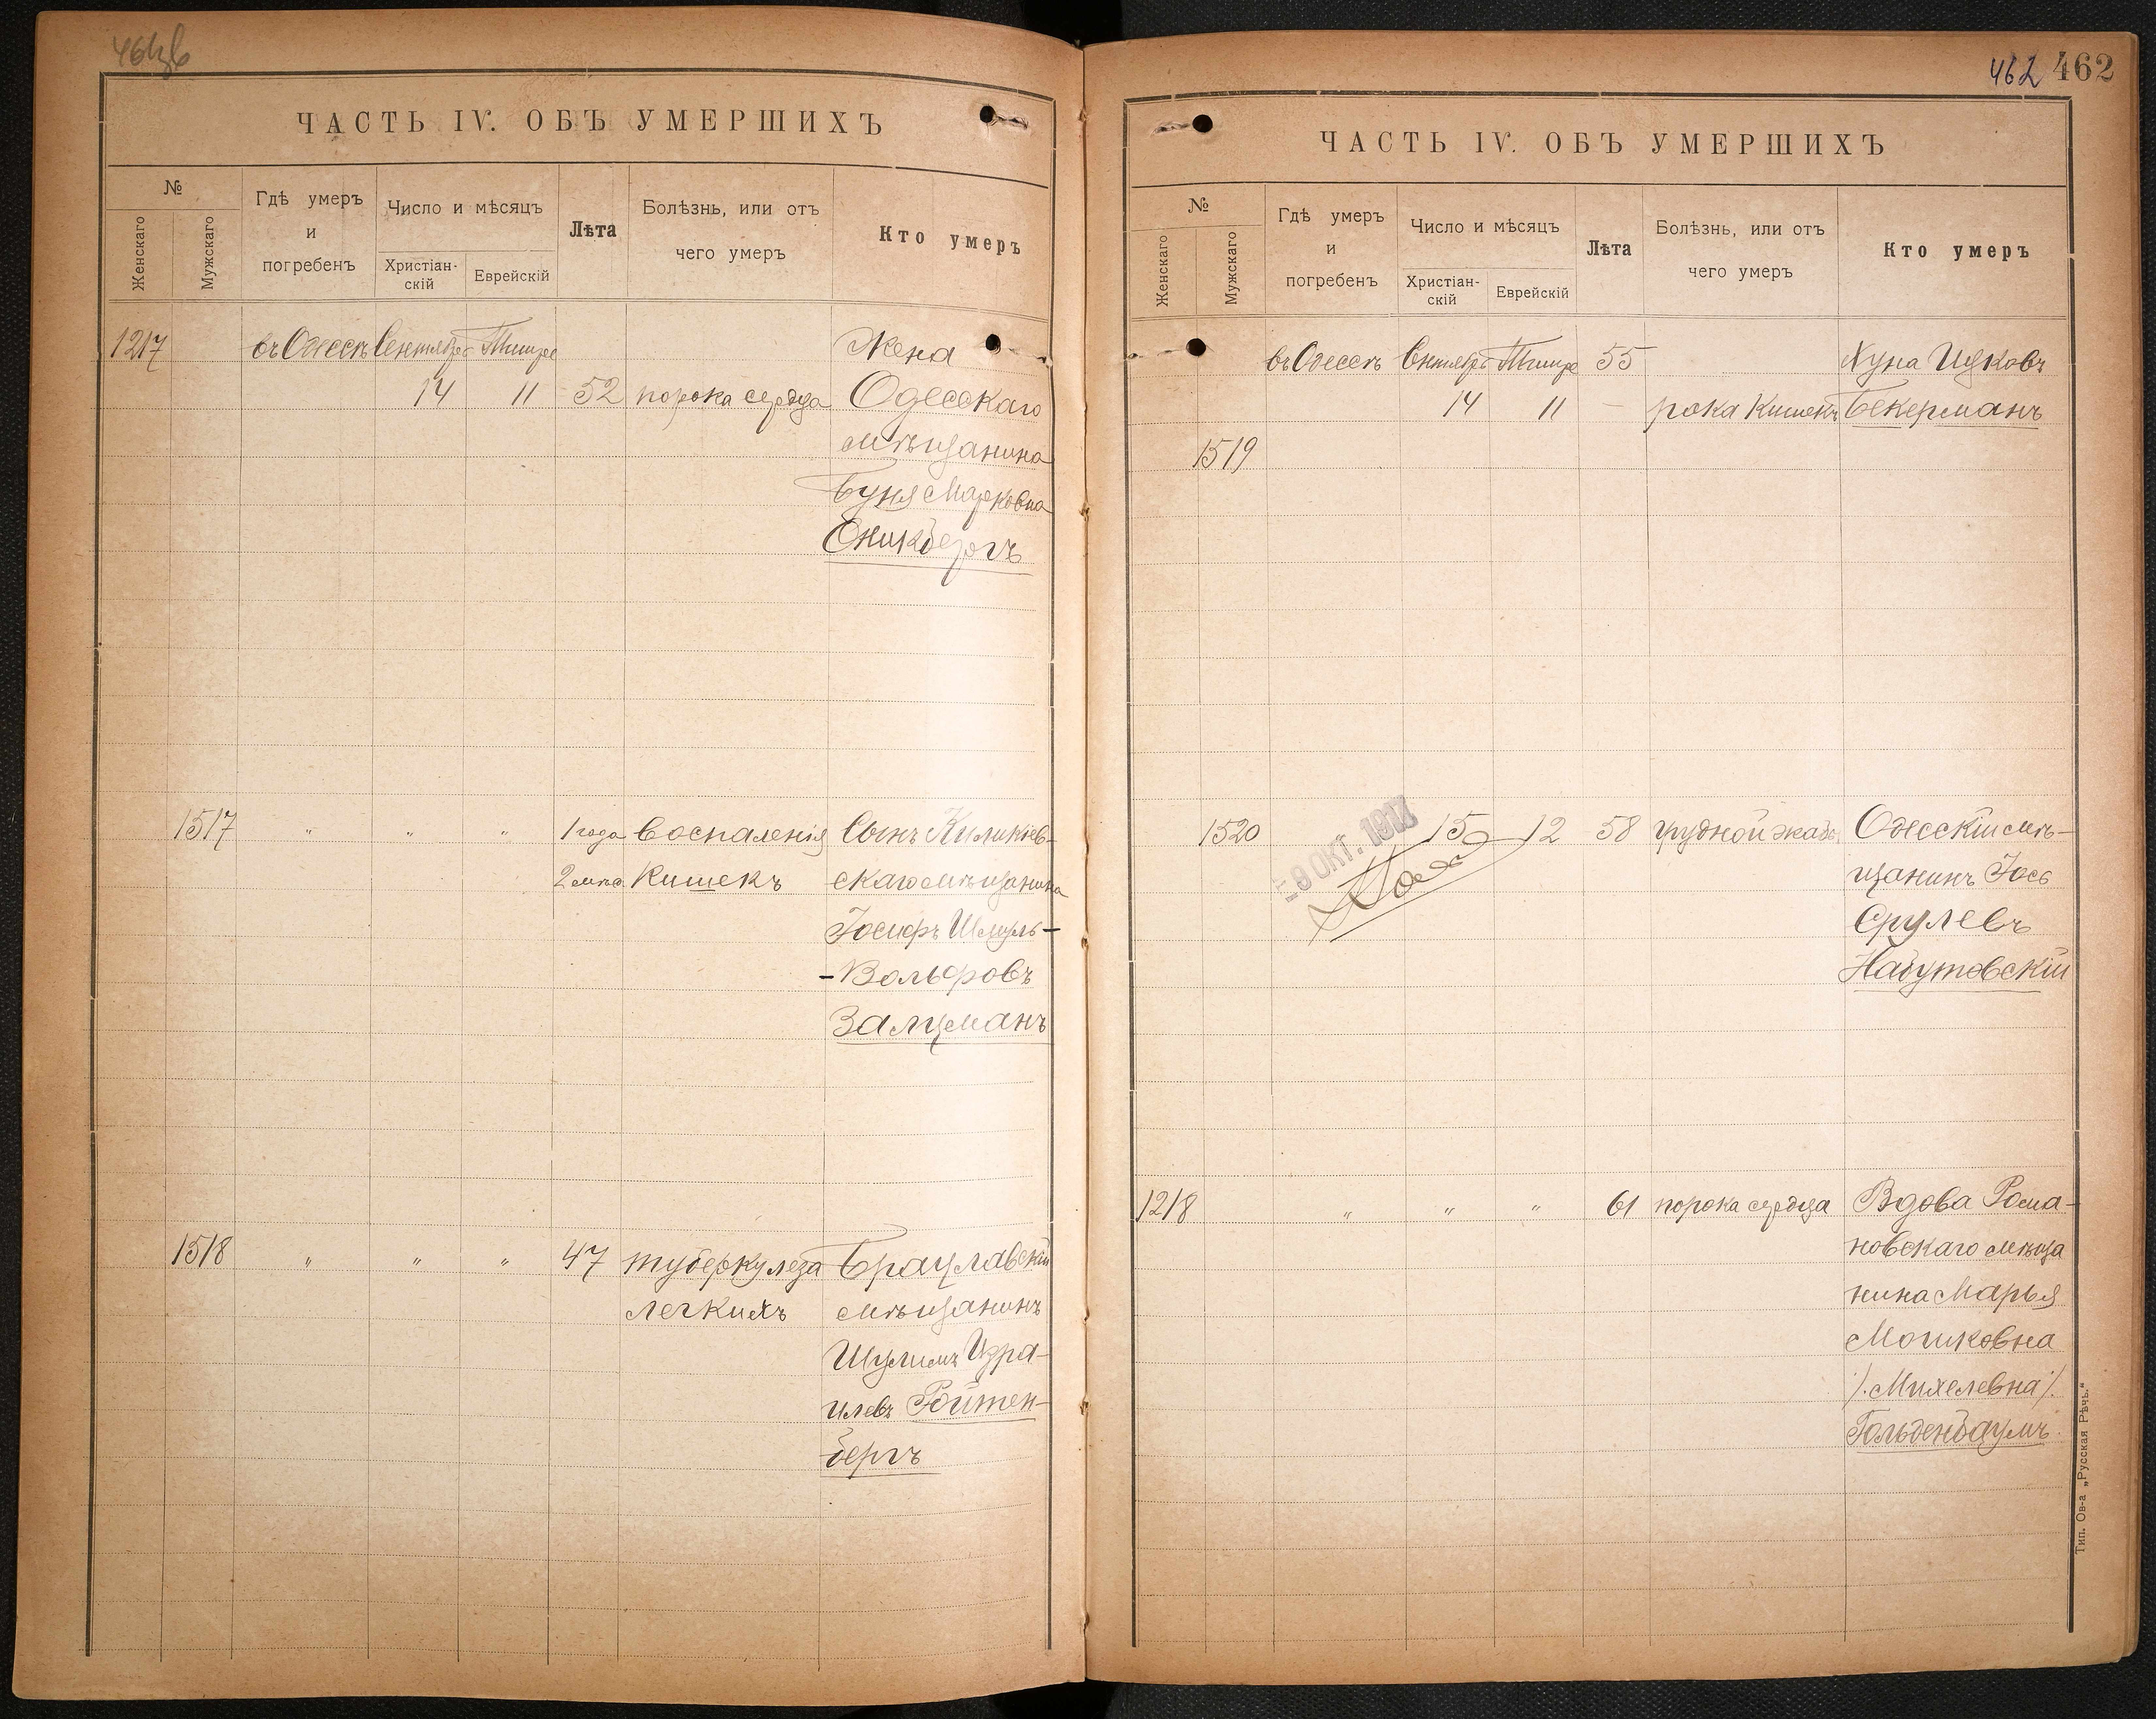 ЧАСТЬ IV. ОБЪ УМЕРШИХЪ
№
Женскаго
Мужскаго
Гдѣ умеръ
и
погребенъ
Число и мѣсяцъ
Христіан-
скій
Еврейскій
Лѣта
Болѣзнь, или отъ
чего умеръ
Кто умеръ
1217 въ Одессѣ Сентября Тишре Жена
14 11 52 порока сердца Одесскаго
мѣщанина
Буня Марковна
Сникбергъ
1517 " " " 1 года Воспаленія Сынъ Киликів-
2 мца Кишекъ скаго мѣщанина
Іосифъ Шмуль-
-Вольфовъ
Залцманъ
1518 " " " 47 туберкулеза Брацлавскій
легкихъ мѣщанинъ
Шулимъ Изра-
илевъ Ройтен-
бергъ
462 462
ЧАСТЬ IV. ОБЪ УМЕРШИХЪ
№
Женскаго
Мужскаго
Гдѣ умеръ
и
погребенъ
Число и мѣсяцъ
Христіан-
скій
Еврейскій
Лѣта
Болѣзнь, или отъ
чего умеръ
Кто умеръ
въ Одессѣ Сентября Тишре 55 Хуна Ицковъ
14 11 - рака Кишекъ Бекерманъ
1519
1520 15 12 58 грудной жабы Одесскій мѣ-
щанинъ Іось
Срулевъ
Набутовскій
- 9 ОКТ. 1917
1218 " " " 61 порока сердца Вдова Рома-
новскаго мѣща
нина Марья
Мошковна
/.Михелевна/.
Гольденбаумъ.
Тип. Ов-а „Русская Рѣчь."